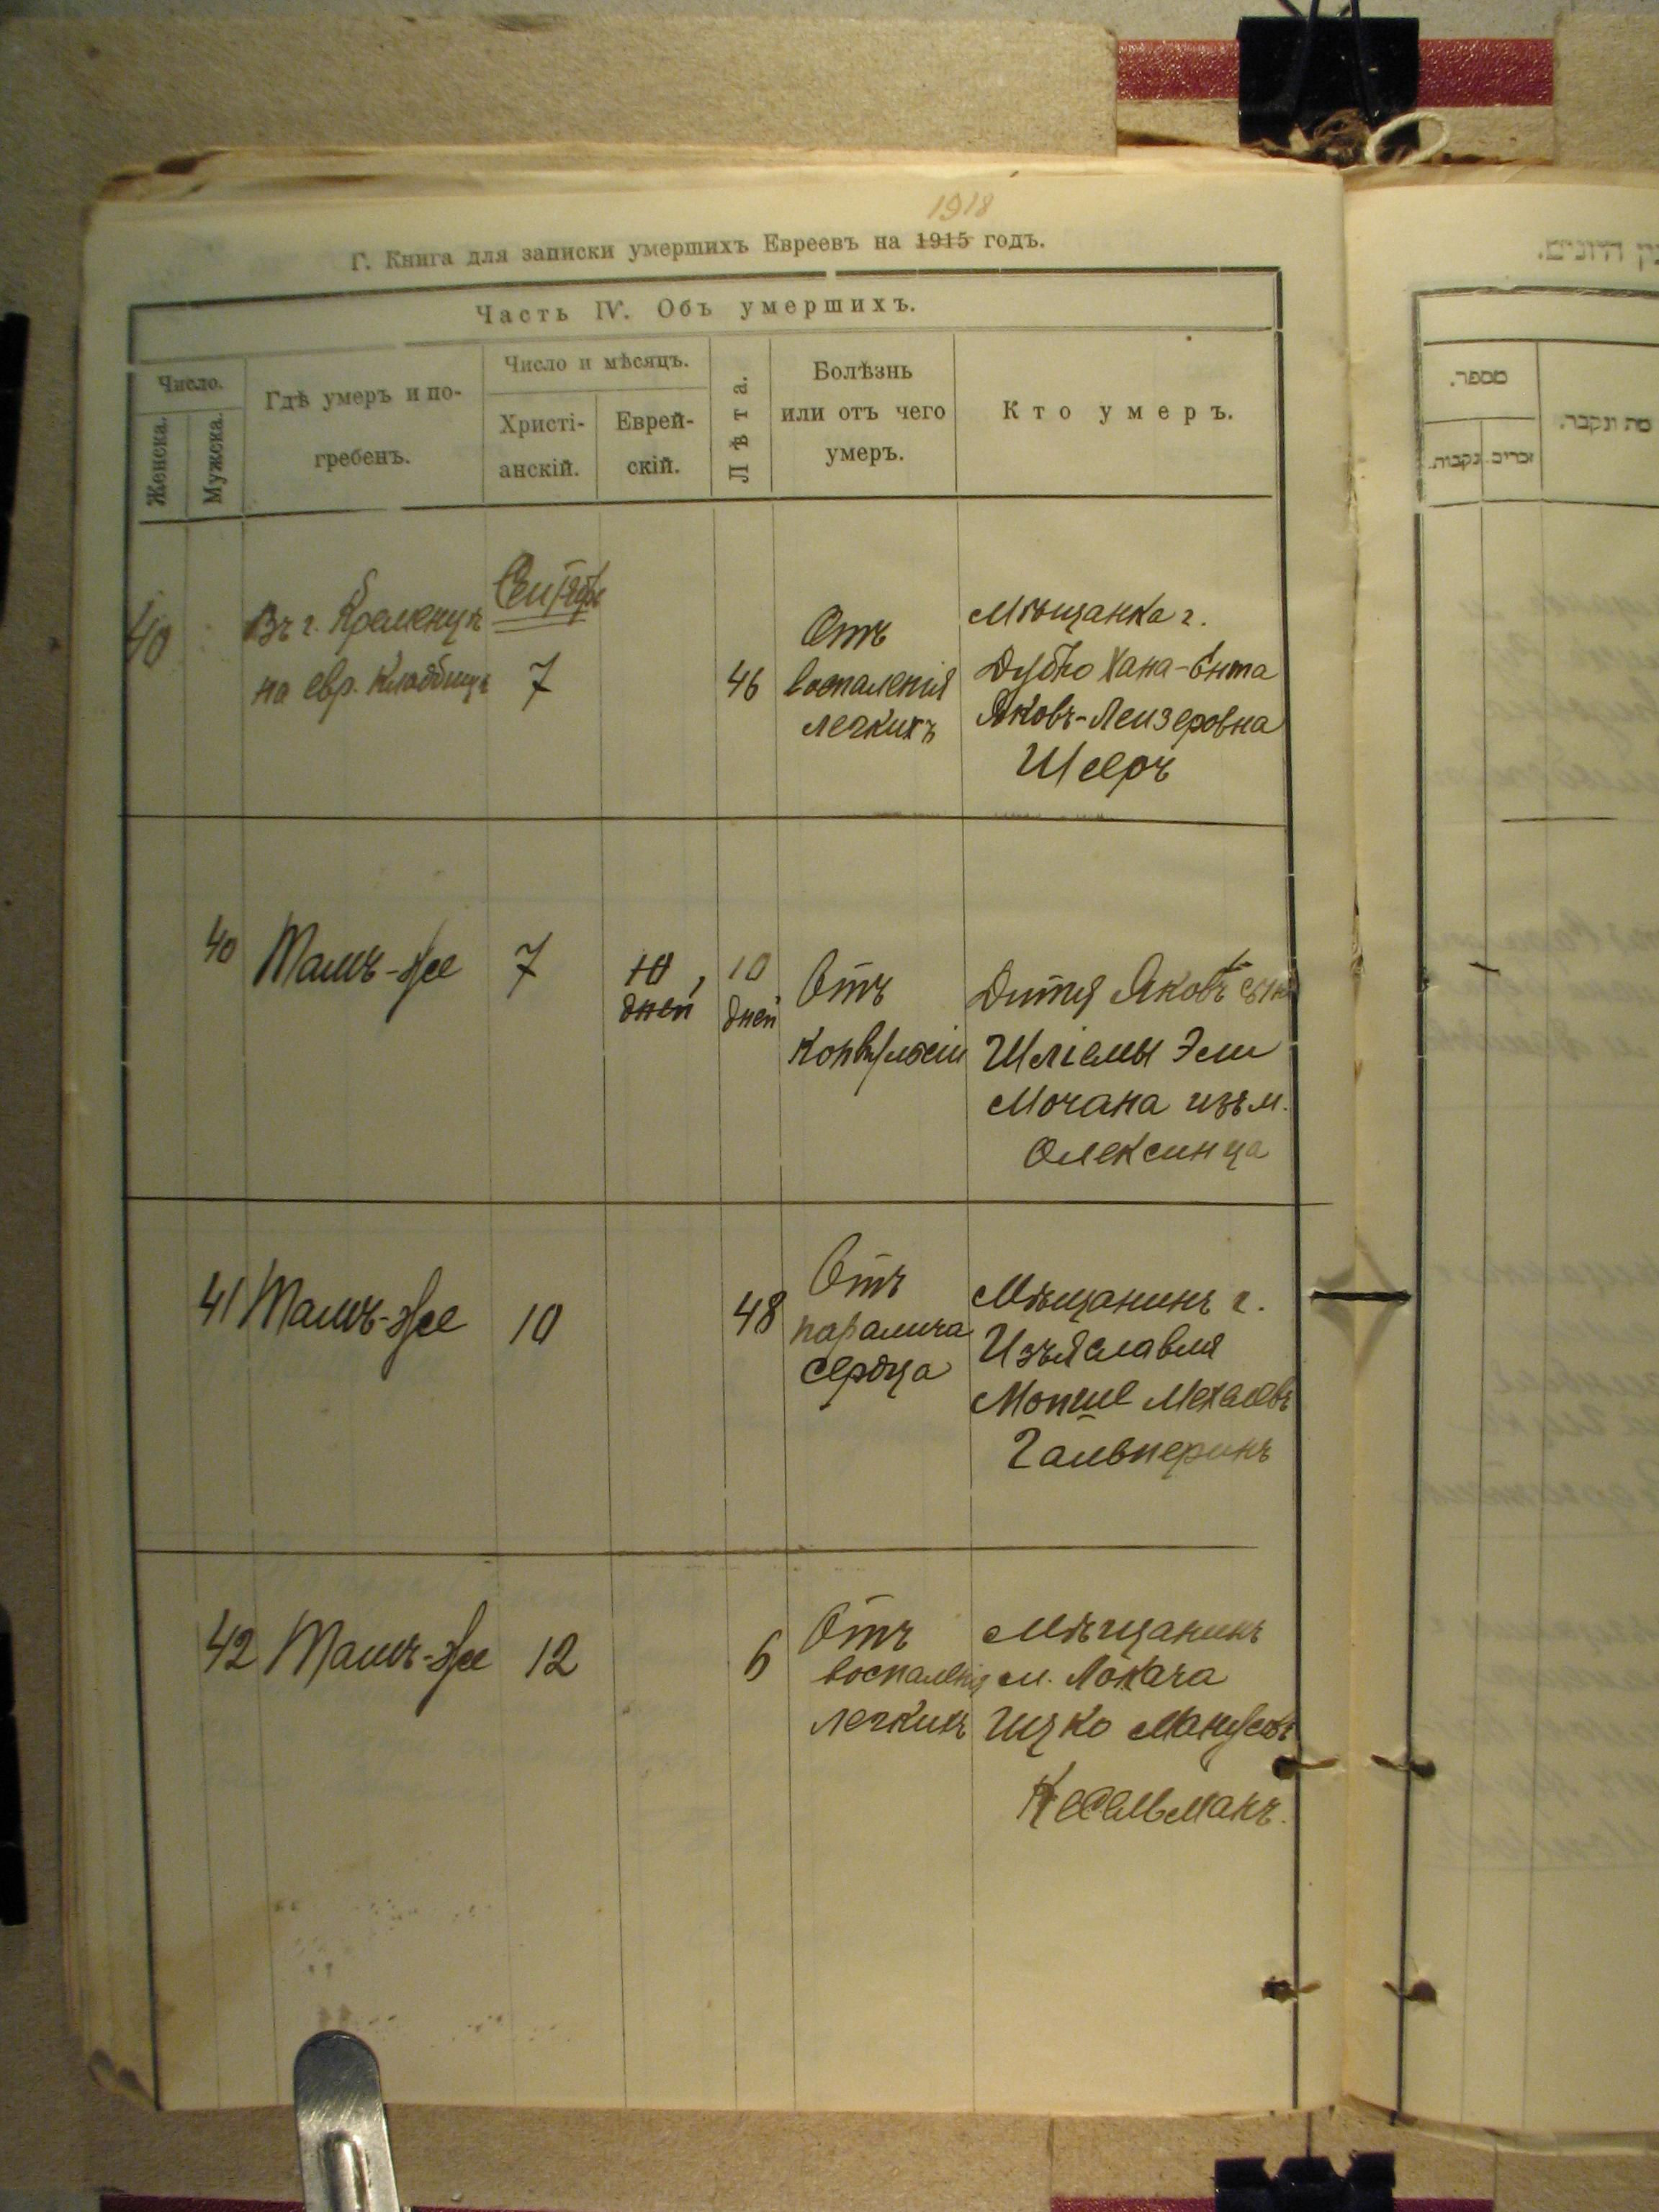 1918
Г. Книга для записки умершихъ Евреевъ на 1915 годъ.
Часть IV. Объ умершихъ.
Число.
Женска.
Мужска.
Гдѣ умеръ и по-
гребенъ.
Число и мѣсяцъ.
Христі-
анскій.
Еврей-
скій.
Лѣта.
Болѣзнь
или отъ чего
умеръ.
Кто умеръ.
40
Въ г. Кременцѣ
на евр. кладбищѣ
7
46
Отъ
воспаленія
легкихъ
Мѣщанка г.
Дубно Хана-Ента
Яковъ-Лейзеровна
Шееръ
40
Тамъ-же
7
10
дней
10
дней
Отъ
конвульсіи
Дитя Яковъ сынъ
Шліомы Эли
Мочана изъ м.
Олексинца
41
Тамъ-же
10
48
Отъ
паралича
сердца
Мѣщанинъ г.
Изъяславля
Гальперинъ
42
Тамъ-же
12
6
Отъ
воспаленія
легкихъ
Мѣщанинъ
м. Локача
Ицко
Кесельманъ.
מספר.
זכרים.
נקבות.
מת ונקבר.